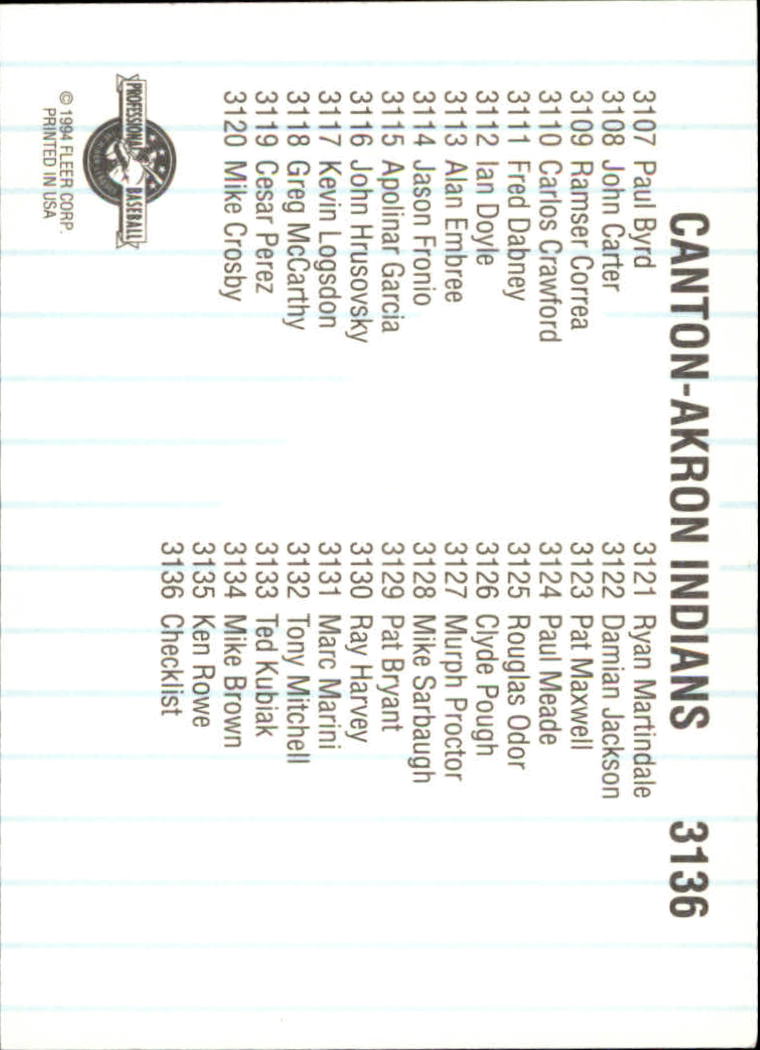 CANTON-AKRON INDIANS 3136
3107 Paul Byrd
3108 John Carter
3109 Ramser Correa
3110 Carlos Crawford
3111 Fred Dabney
3112 Ian Doyle
3113 Alan Embree
3114 Jason Fronio
3115 Apolinar Garcia
3116 John Hrusovsky
3117 Kevin Logsdon
3118 Greg McCarthy
3119 Cesar Perez
3120 Mike Crosby
3121 Ryan Martindale
3122 Damian Jackson
3123 Pat Maxwell
3124 Paul Meade
3125 Rouglas Odor
3126 Clyde Pough
3127 Murph Proctor
3128 Mike Sarbaugh
3129 Pat Bryant
3130 Ray Harvey
3131 Marc Marini
3132 Tony Mitchell
3133 Ted Kubiak
3134 Mike Brown
3135 Ken Rowe
3136 Checklist
PROFESSIONAL BASEBALL
© 1994 FLEER CORP.
PRINTED IN USA